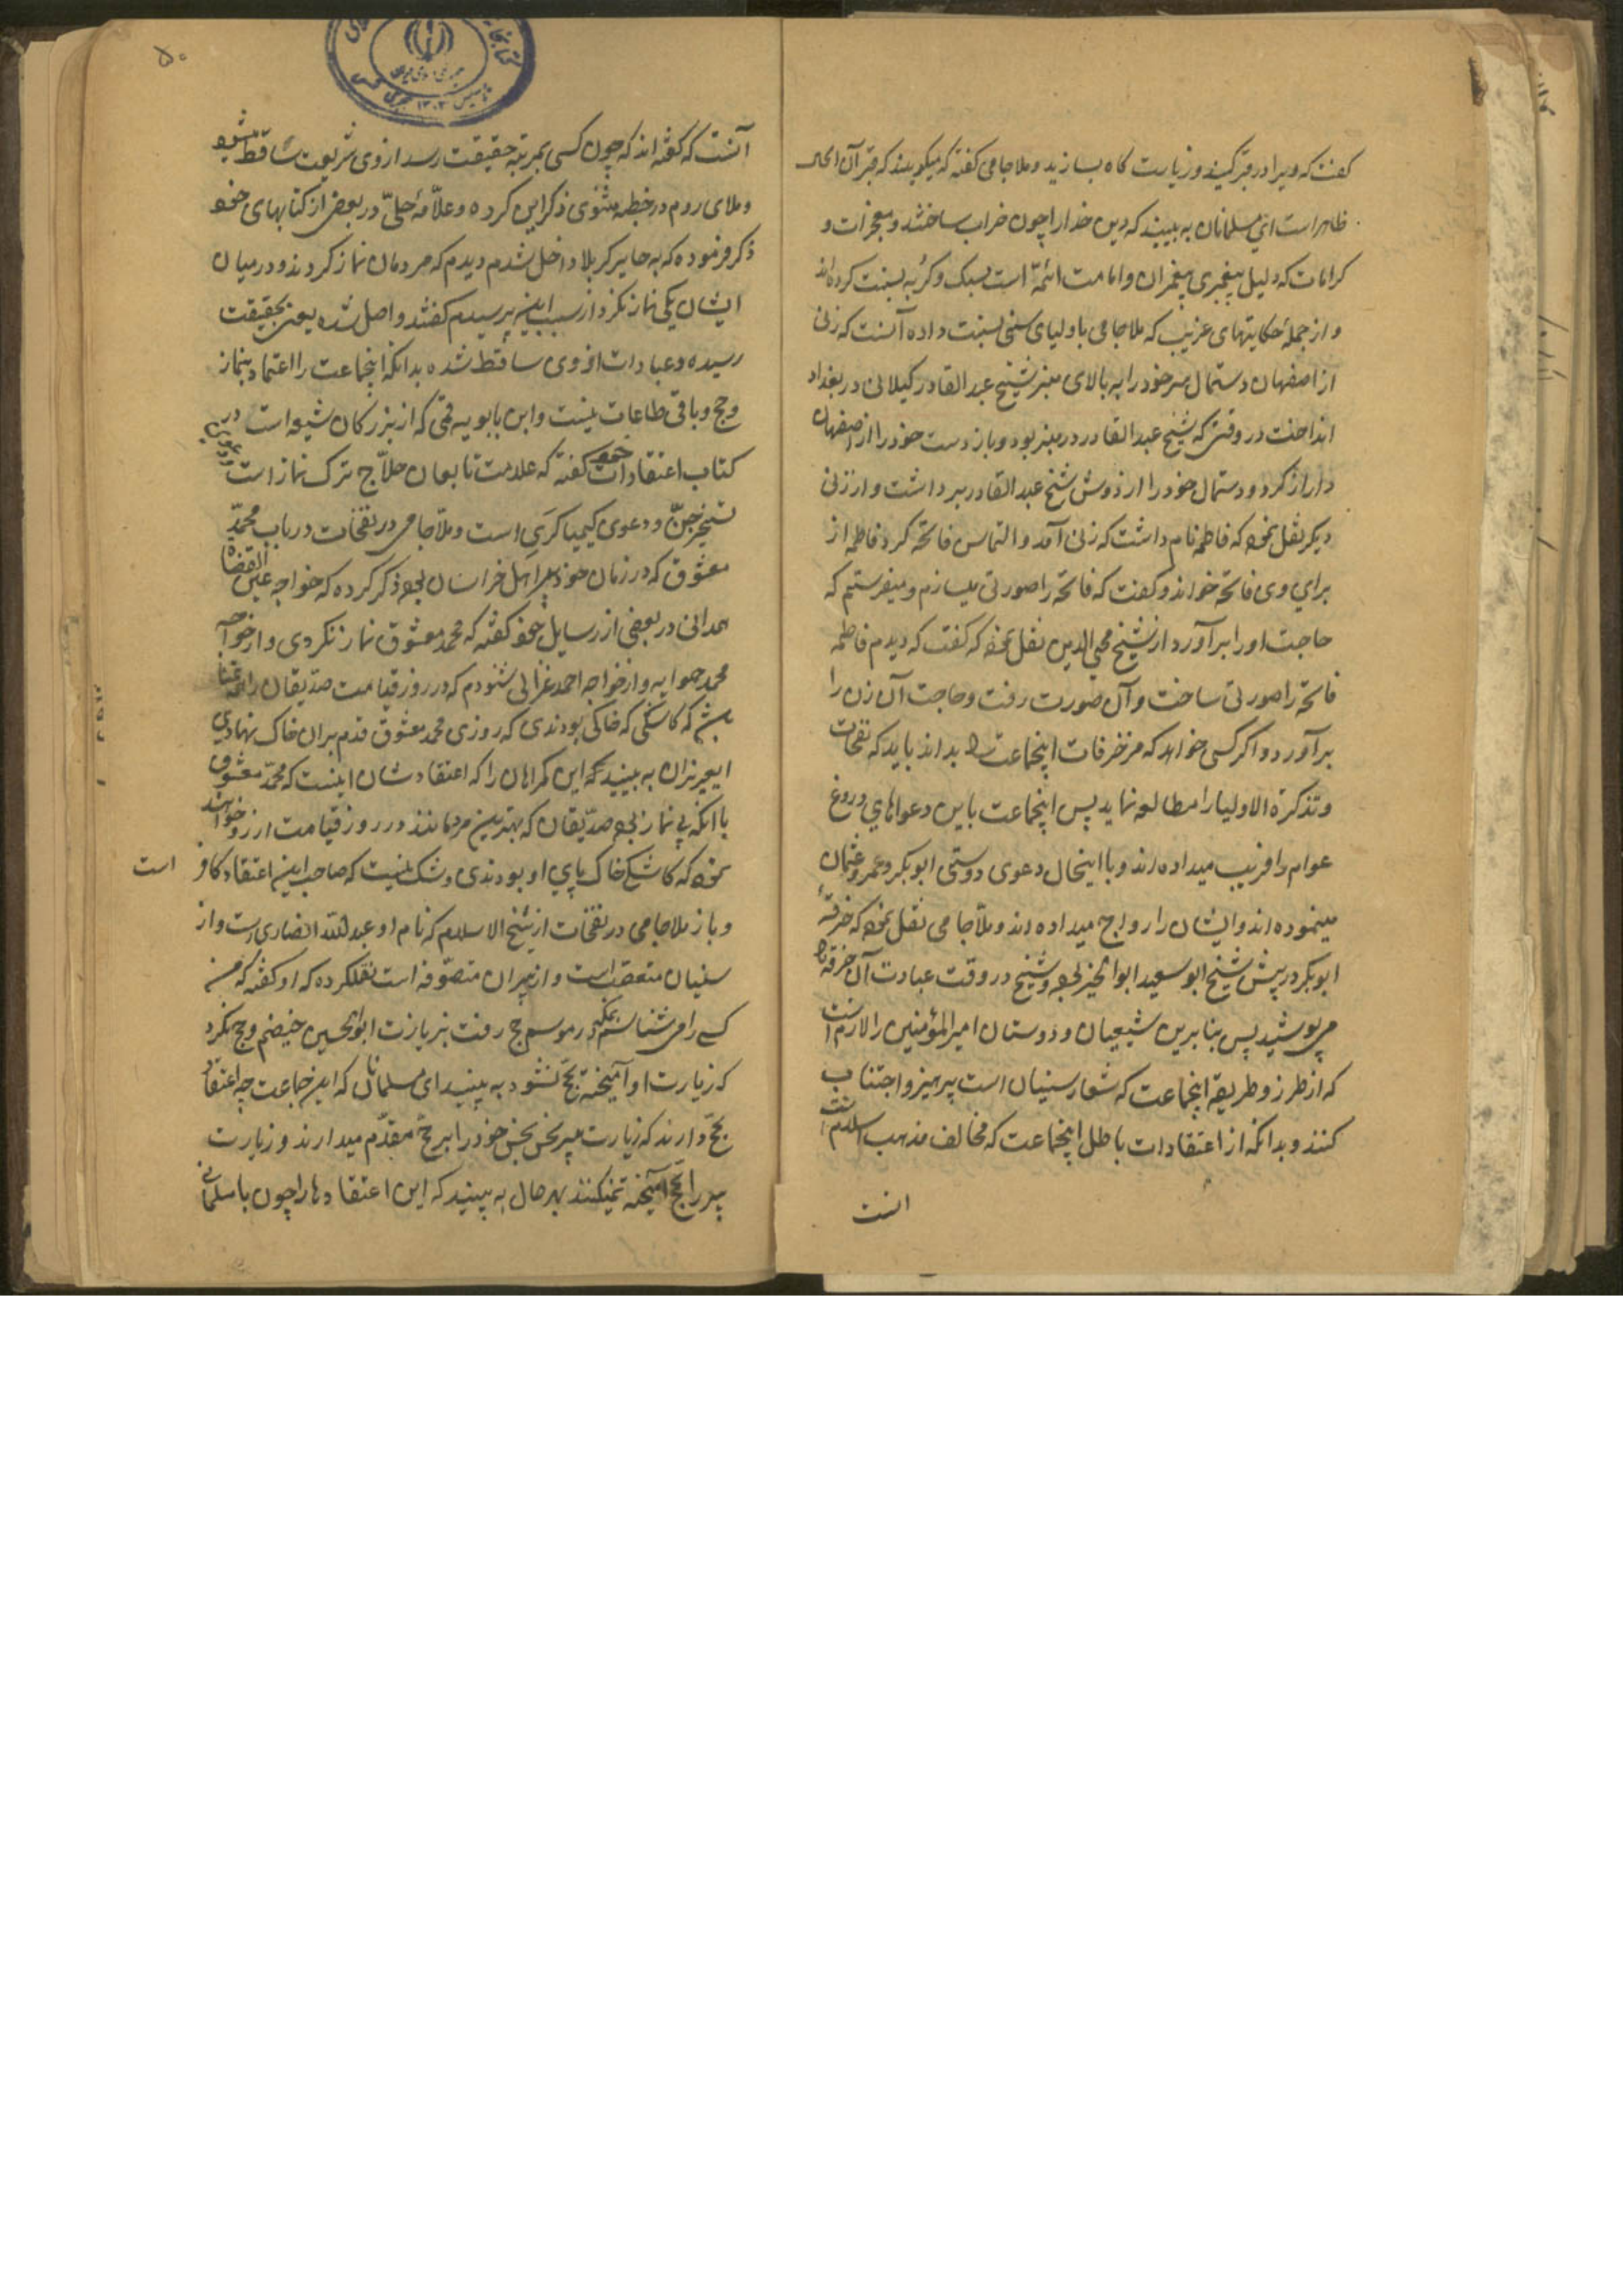 کفت که ویرا در قبر کنید و زیارت کاه بسازید و ملا جامی کفته که میکویند که قبر آن الحال
ظاهر است ای مسلمانان به بینید که دین خدا را چون خراب ساختند و معجزات و
کرامات که دلیل پیغمبری پیغمبران و امامت ائمه است بسک و کربه نسبت کرده اند
و از جملهٔ حکایتهای غریب که ملا جامی باولیای سنی نسبت داده آنست که زنی
از اصفهان دستمال سر خود را به بالای منبر شیخ عبد القادر کیلانی در بغداد
انداخت در وقتی که شیخ عبد القادر در منبر بود و باز دست خود را از اصفهان
دراز کرد و دستمال خود را از دوش شیخ عبد القادر برداشت و از زنی
دیکر نقل نموده که فاطمه نام داشت که زنی آمد و التماس فاتحه کرد فاطمه از
برای وی فاتحه خواند و کفت که فاتحه را صورتی میسازم و میفرستم که
حاجت او را برآورد از شیخ محیی الدین نقل نموده که کفت که دیدم فاطمه
فاتحه را صورتی ساخت و آن صورت رفت و حاجت آن زن را
برآورد و اکر کسی خواهد که مزخرفات اینجماعت را بداند باید که نفحات
و تذکرة الاولیا را مطالعه نماید پس اینجماعت باین دعواهای دروغ
عوام را فریب میداده اند و با اینحال دعوی دوستی ابوبکر و عمر و عثمان
مینموده اند و ایشان را رواج میداده اند و ملا جامی نقل نموده که خرقهٔ
ابوبکر در پیش شیخ ابو سعید ابو الخیر بوده و شیخ در وقت عبادت آن خرقه را
می پوشید پس بنا برین شیعیان و دوستان امیر المؤمنین را لازم است
که از طرز و طریقهٔ اینجماعت که شعار سنیان است پرهیز و اجتناب
کنند و بدانکه از اعتقادات باطل اینجماعت که مخالف مذهب اسلام است
انست
۵۰
آنست که کفته اند که چون کسی بمرتبه حقیقت رسد از وی شریعت ساقط میشود
و ملای روم در خطبه مثنوی ذکر این کرده و علّامهٔ حلّی در بعض از کتابهای خود
ذکر فرموده که به حایر کربلا داخل شدم دیدم که مردمان نماز کردند و در میان
ایشان یکی نماز نکرد از سبب این پرسیدم کفتند واصل شده یعنی بحقیقت
رسیده و عبادات از وی ساقط شده بدانکه اینجماعت را اعتماد بنماز
و حج و باقی طاعات نیست و ابن بابویه قمی که از بزرکان شیعه است در
کتاب اعتقادات خود کفته که علامت تابعان حلّاج ترک نماز است
تسخیر جنّ و دعوی کیمیاکری است و ملّا جامی در نفحات در باب محمّد
معشوق که در زمان خود پیر اهل خراسان بوده ذکر کرده که خواجه عین القضاة
همدانی در بعضی از رسایل خود کفته که محمد معشوق نماز نکردی و از خواجه
محمد حمویه و از خواجه احمد غزالی شنودم که در روز قیامت صدّیقان را تمنّا
که کاشکی که خاکی بودندی که روزی محمد معشوق قدم بران خاک نهادی
ایعزیزان به بینید که این کمراهان را که اعتقادشان اینست که محمّد معشوق
با انکه بی نماز بوده صدّیقان که بهترین مردمانند در روز قیامت ارزو خواهند
نمود که کاشکی خاک پای او بودندی و شک نیست که صاحب این اعتقاد کافر است
و باز ملا جامی در نفحات از شیخ الاسلام که نام او عبد الله انصاری است و از
سنیان متعصّب است و از پیران متصوّفه است نقلکرده که او کفته که من
کسی را می شناسم که در موسم حج رفت بزیارت ابو الحسین و حج نکرد
که زیارت او آمیخته بحج نشود به بینید ای مسلمانان که این جماعت چه اعتقاد
بحج دارند که زیارت پیر نحس نجس خود را بر حج مقدّم میدارند و زیارت
پیر را بحج آمیخته نمیکنند بهر حال به بینید که این اعتقادها را چون با مسلمانی